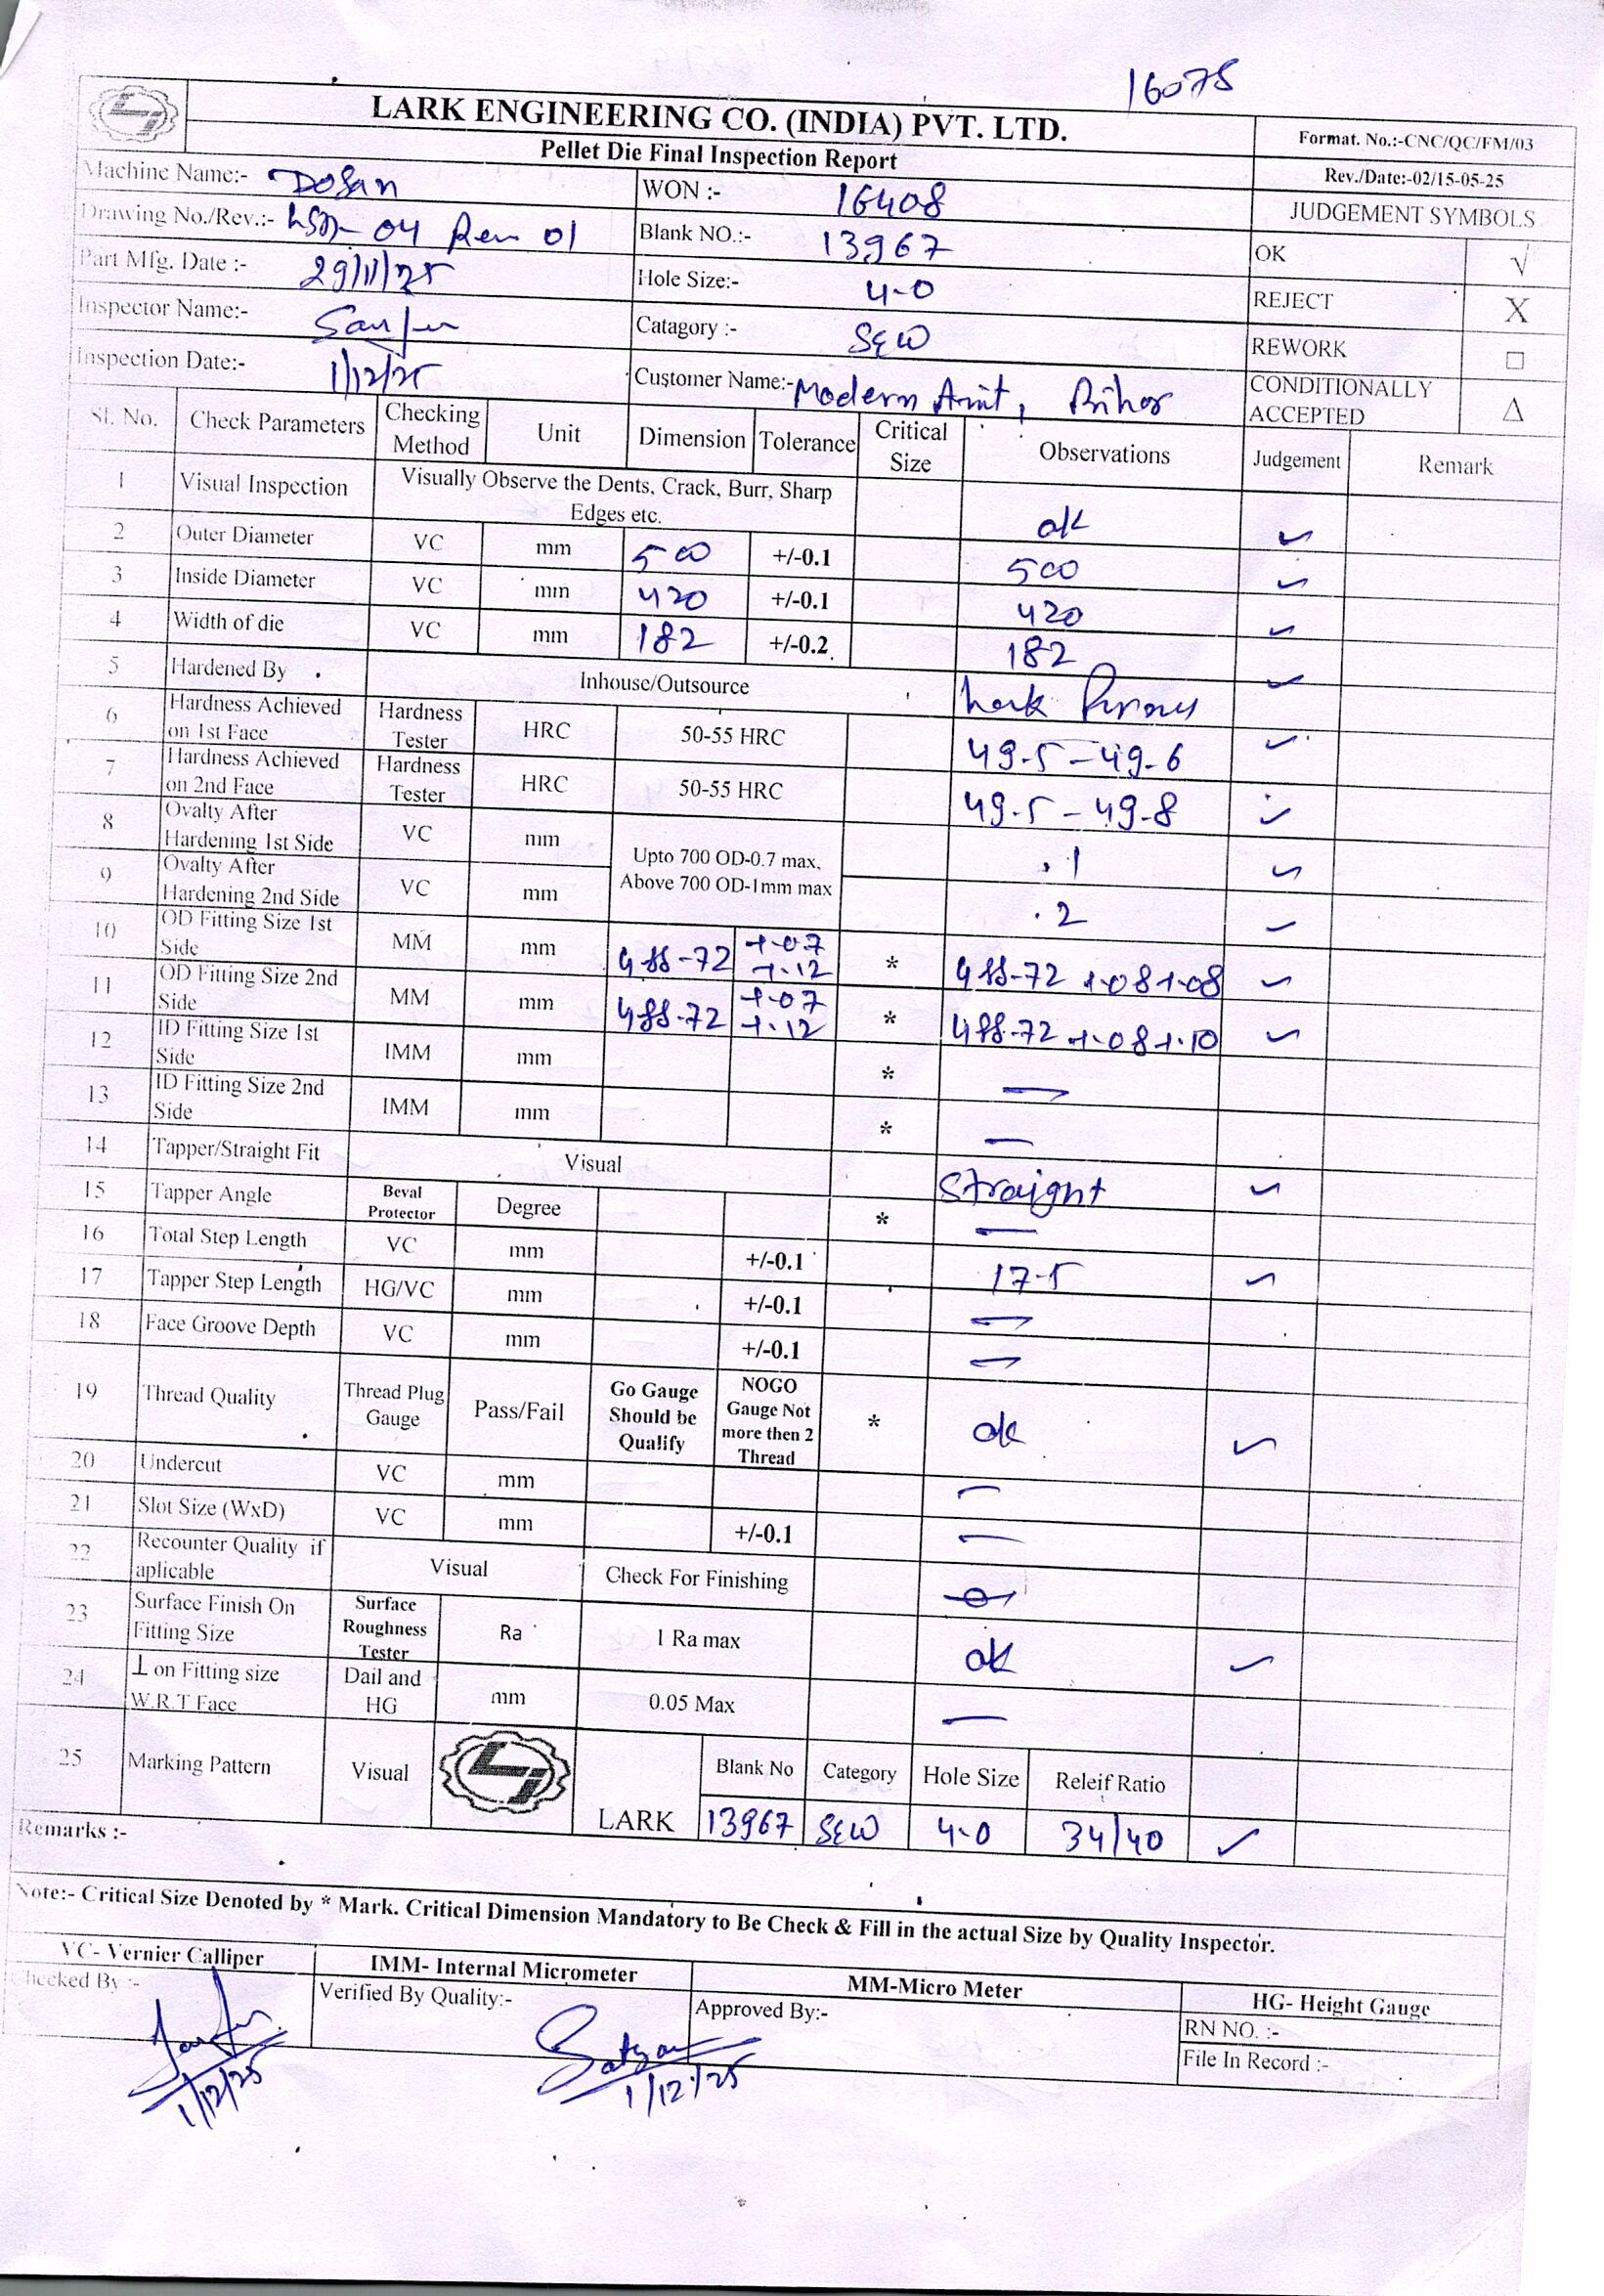 16075
LARK ENGINEERING CO. (INDIA) PVT. LTD.
Pellet Die Final Inspection Report
Format. No.:-CNC/QC/FM/03
Rev./Date:-02/15-05-25
Machine Name:- Dosan
WON :- 16408
JUDGEMENT SYMBOLS
Drawing No./Rev.:- 04 Rev 01
Blank NO.:- 13967
OK √
Part Mfg. Date :- 29/11/25
Hole Size:- 4.0
REJECT X
Inspector Name:-
Catagory :- S&W
REWORK □
Inspection Date:- 1/12/25
Customer Name:- Modern
CONDITIONALLY ACCEPTED Δ
Sl. No. Check Parameters Checking Method Unit Dimension Tolerance Critical Size Observations Judgement Remark
1 Visual Inspection Visually Observe the Dents, Crack, Burr, Sharp Edges etc. ok ✓
2 Outer Diameter VC mm 500 +/-0.1 500 ✓
3 Inside Diameter VC mm 420 +/-0.1 420 ✓
4 Width of die VC mm 182 +/-0.2 182 ✓
5 Hardened By Inhouse/Outsource Lark ✓
6 Hardness Achieved on 1st Face Hardness Tester HRC 50-55 HRC 49.5 - 49.6 ✓
7 Hardness Achieved on 2nd Face Hardness Tester HRC 50-55 HRC 49.5 - 49.8 ✓
8 Ovalty After Hardening 1st Side VC mm Upto 700 OD-0.7 max, Above 700 OD-1mm max .1 ✓
9 Ovalty After Hardening 2nd Side VC mm .2 ✓
10 OD Fitting Size 1st Side MM mm 488.72 +.07 +.12 * 488.72 +.08 +.08 ✓
11 OD Fitting Size 2nd Side MM mm 488.72 +.07 +.12 * 488.72 +.08 +.10 ✓
12 ID Fitting Size 1st Side IMM mm * —
13 ID Fitting Size 2nd Side IMM mm * —
14 Tapper/Straight Fit Visual Straight ✓
15 Tapper Angle Beval Protector Degree * —
16 Total Step Length VC mm +/-0.1 17.5 ✓
17 Tapper Step Length HG/VC mm +/-0.1 —
18 Face Groove Depth VC mm +/-0.1 —
19 Thread Quality Thread Plug Gauge Pass/Fail Go Gauge Should be Qualify NOGO Gauge Not more then 2 Thread * ok ✓
20 Undercut VC mm —
21 Slot Size (WxD) VC mm +/-0.1 —
22 Recounter Quality if aplicable Visual Check For Finishing —
23 Surface Finish On Fitting Size Surface Roughness Tester Ra 1 Ra max ok ✓
24 ⊥ on Fitting size W.R.T Face Dail and HG mm 0.05 Max —
25 Marking Pattern Visual LARK Blank No Category Hole Size Releif Ratio
13967 S&W 4.0 34/40 ✓
Remarks :-
Note:- Critical Size Denoted by * Mark. Critical Dimension Mandatory to Be Check & Fill in the actual Size by Quality Inspector.
VC- Vernier Calliper IMM- Internal Micrometer MM-Micro Meter HG- Height Gauge
Checked By :- Verified By Quality:- Approved By:- RN NO. :-
File In Record :-
1/12/25 Satyam 1/12/25